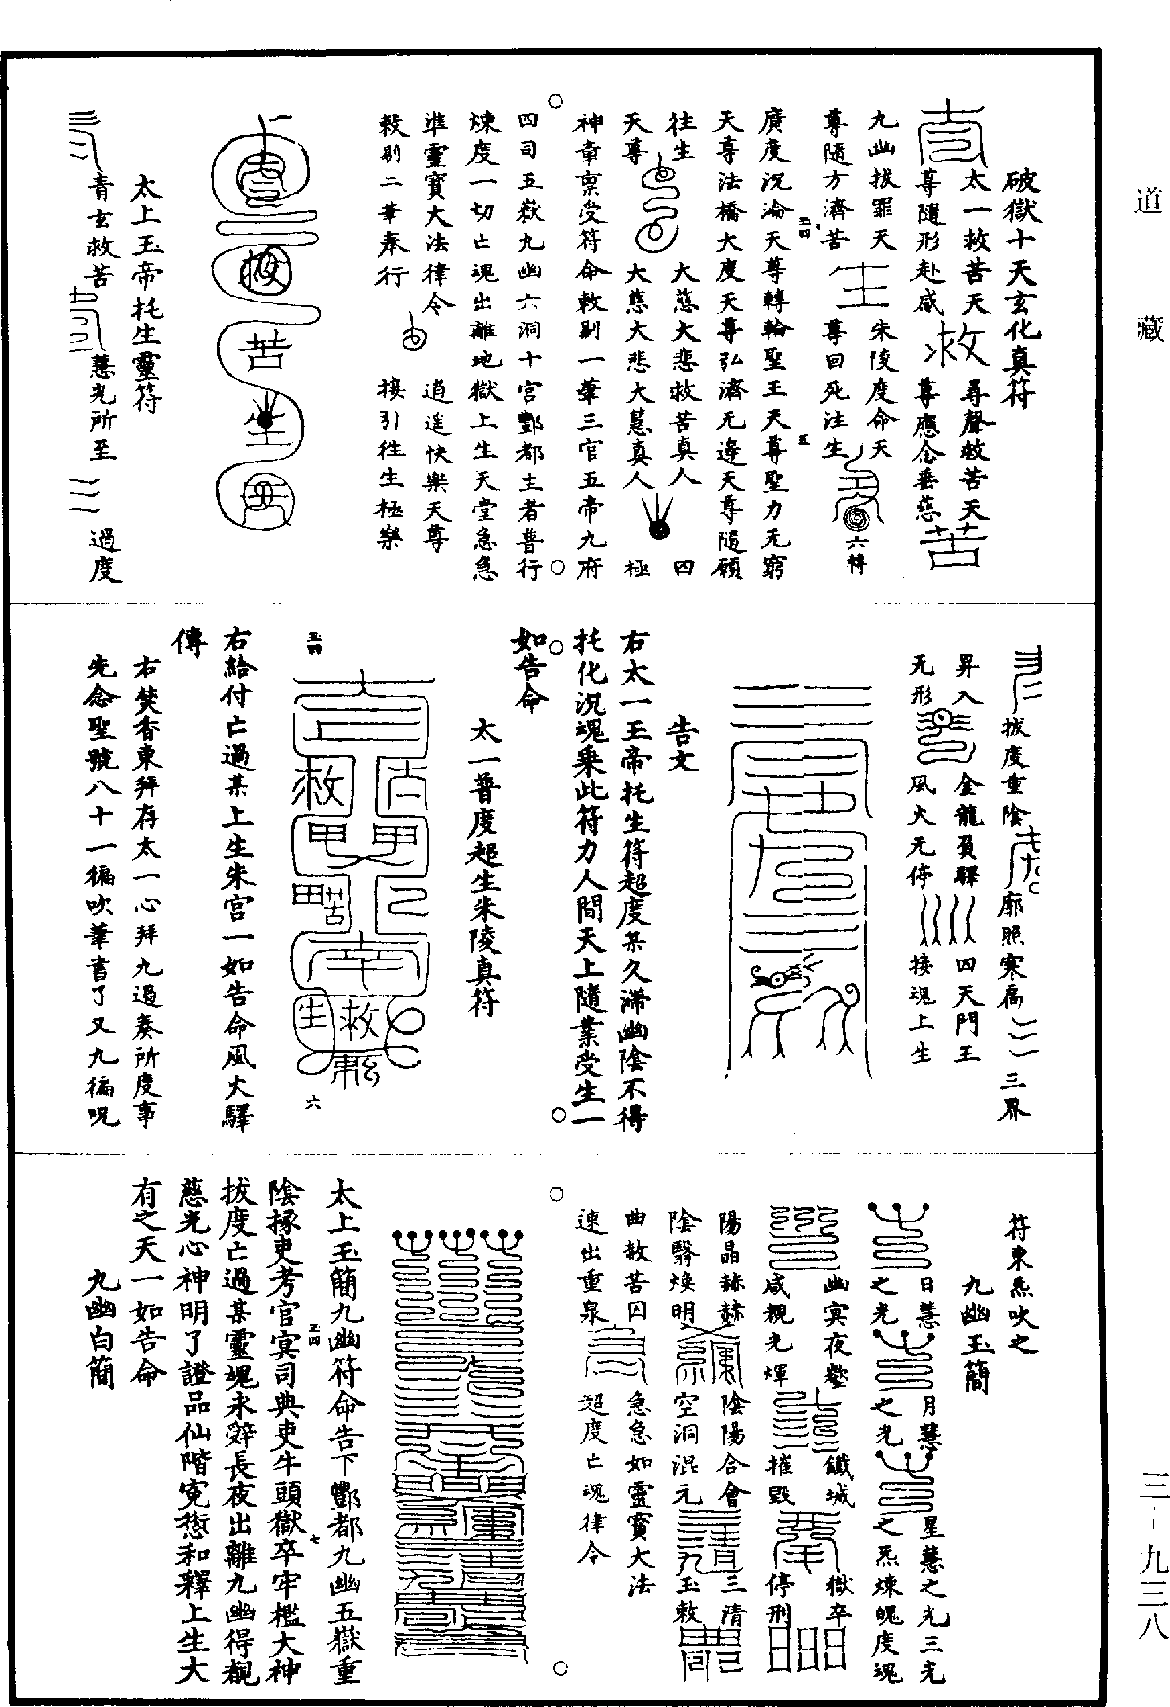 道藏
三-九三八
破獄十天玄化真符
太一救苦天
尊隨形赴感
尋聲救苦天
尊應念垂慈
九幽拔罪天
尊隨方濟苦
朱陵度命天
尊回死注生
六轉
廣度沉淪天尊轉輪聖王天尊聖力无窮
天尊法橋大度天尊弘濟无邊天尊隨願
往生
天尊
大慈大悲救苦真人
大慈大悲大慧真人
四
極
神章稟受符命敕則一華三官五帝九府
四司五嶽九幽六洞十宮酆都主者普行
煉度一切亡魂出離地獄上生天堂急急
準靈寶大法律令
逍遙快樂天尊
敕則二華奉行
接引往生極樂
太上玉帝托生靈符
青玄救苦
慧光所至
過度
拔度重陰
廓照寒扃
三界
昇入
无形
金龍負驛
風火无停
四天門王
接魂上生
告文
右太一玉帝托生符超度某久滯幽陰不得
托化沉魂乘此符力人間天上隨業受生一
如告命
太一普度超生朱陵真符
右給付亡過某上生朱宮一如告命風火驛
傳
右焚香東拜存太一心拜九過奏所度事
先念聖號八十一徧吹華書了又九徧呪
符東炁吹之
九幽玉簡
日慧
之光
月慧
之光
星慧之光三光
之炁煉魄度魂
幽冥夜壑
咸覩光煇
鐵城
摧毀
獄卒
停刑
陽晶赫赫
陰翳煥明
陰陽合會
空洞混元
三清
玉敕
曲赦苦囚
速出重泉
急急如靈寶大法
超度亡魂律令
太上玉簡九幽符命告下酆都九幽五嶽重
陰掾吏考官冥司典吏牛頭獄卒牢檻大神
拔度亡過某靈魂永辭長夜出離九幽得覩
慈光心神明了證品仙階寃愆和釋上生大
有之天一如告命
九幽白簡